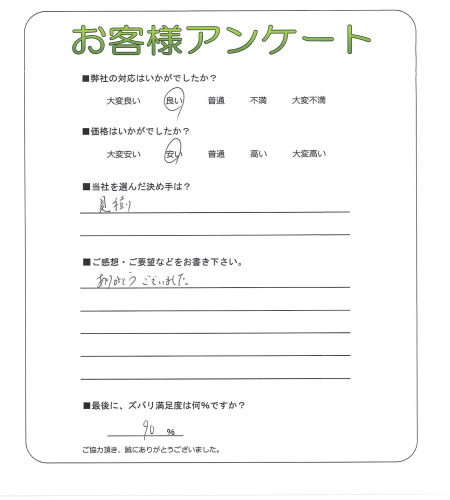 お客様アンケート
■弊社の対応はいかがでしたか？
大変良い 良い 普通 不満 大変不満
■価格はいかがでしたか？
大変安い 安い 普通 高い 大変高い
■当社を選んだ決め手は？
見積り
■ご感想・ご要望などをお書き下さい。
ありがとうございました。
■最後に、ズバリ満足度は何%ですか？
90 %
ご協力頂き、誠にありがとうございました。